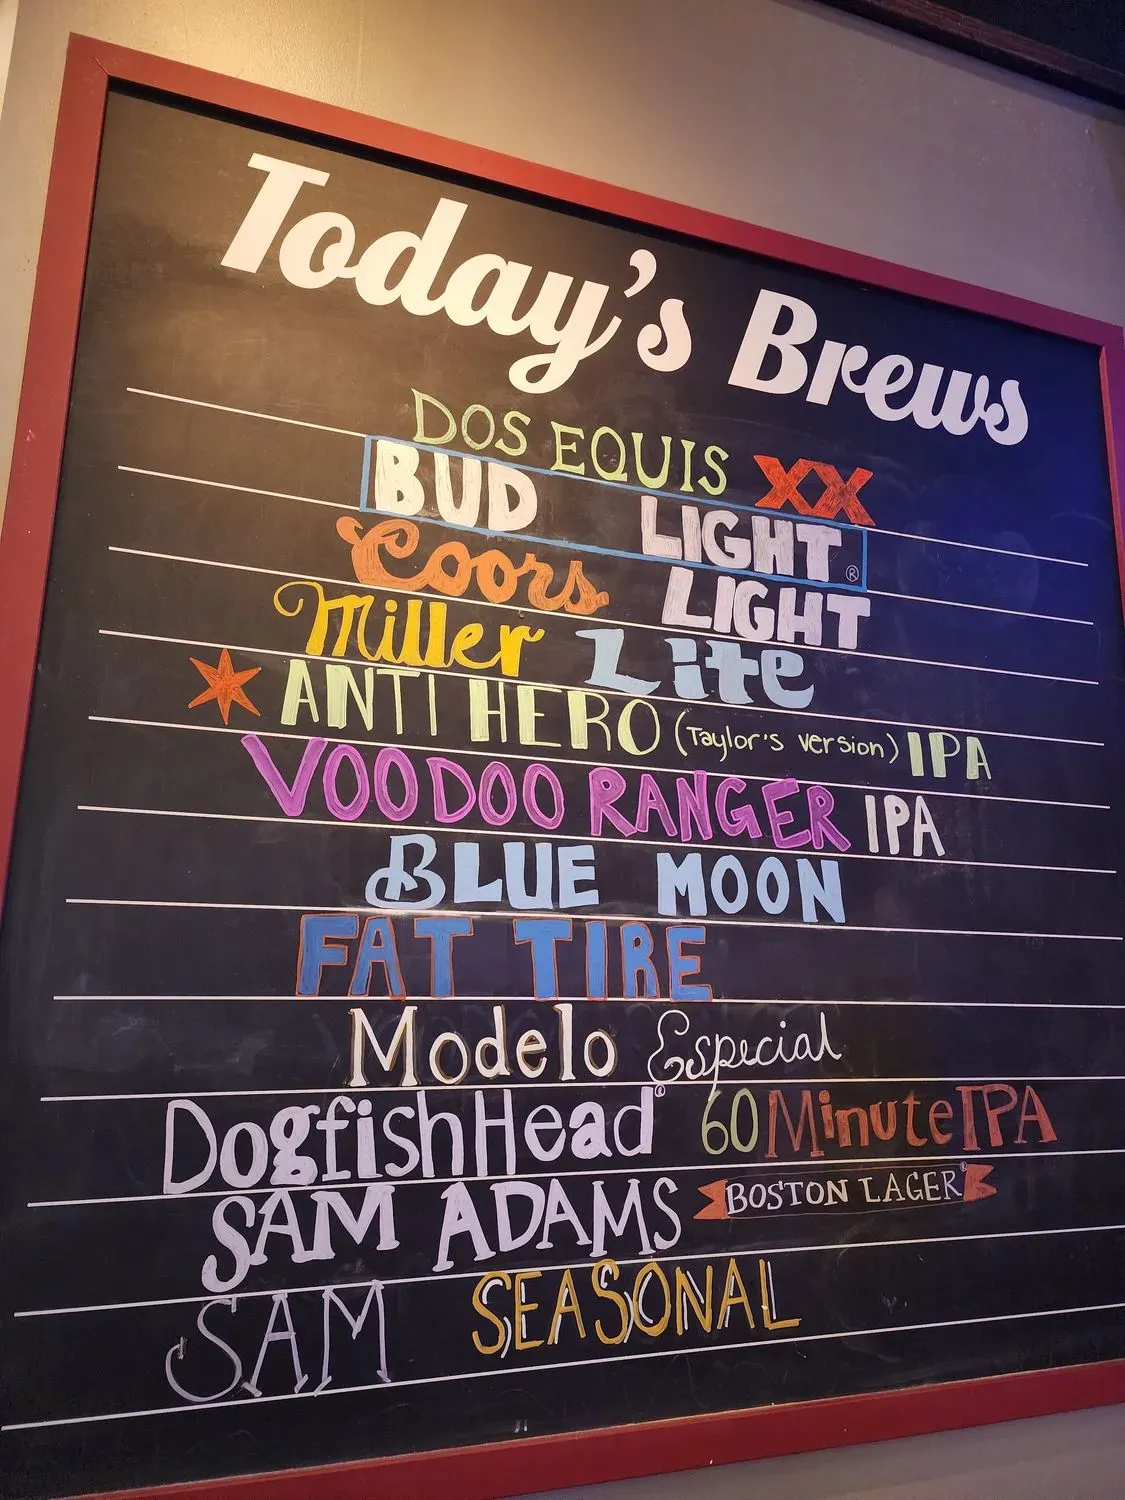 Today's Brews
DOS EQUIS XX
BUD LIGHT ®
Coors LIGHT
Miller Lite
ANTI HERO (Taylor's version) IPA
VOODOO RANGER IPA
BLUE MOON
FAT TIRE
Modelo Especial
DogfishHead® 60 Minute IPA
SAM ADAMS BOSTON LAGER®
SAM SEASONAL